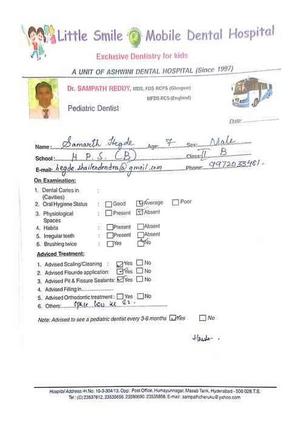 Little Smile Mobile Dental Hospital
Exclusive Dentistry for kids
A UNIT OF ASHWINI DENTAL HOSPITAL (Since 1997)
Dr. SAMPATH REDDY, MDS, FDS RCPS (Glasgow)
MFDS RCS (England)
Pediatric Dentist
Date:
Name: Samarth Hegde Age: 7 Sex: Male
School: H P S (B) Class: II B
E-mail: Phone:
On Examination:
1. Dental Caries in :
(Cavities)
2. Oral Hygiene Status : Good Average Poor
3. Physiological : Present Absent
Spaces
4. Habits : Present Absent
5. Irregular teeth : Present Absent
6. Brushing twice : Yes No
Adviced Treatment:
1. Advised Scaling/Cleaning : Yes No
2. Advised Flouride application : Yes No
3. Advised Pit & Fissure Sealants : Yes No
4. Advised Filing in
5. Advised Orthodontic treatment : Yes No
6. Others:
Note: Advised to see a pediatric dentist every 3-6 months Yes No
Hospital Address: H.No. 10-3-304/13, Opp. Post Office, Humayunnagar, Masab Tank, Hyderabad - 500 028 T.S.